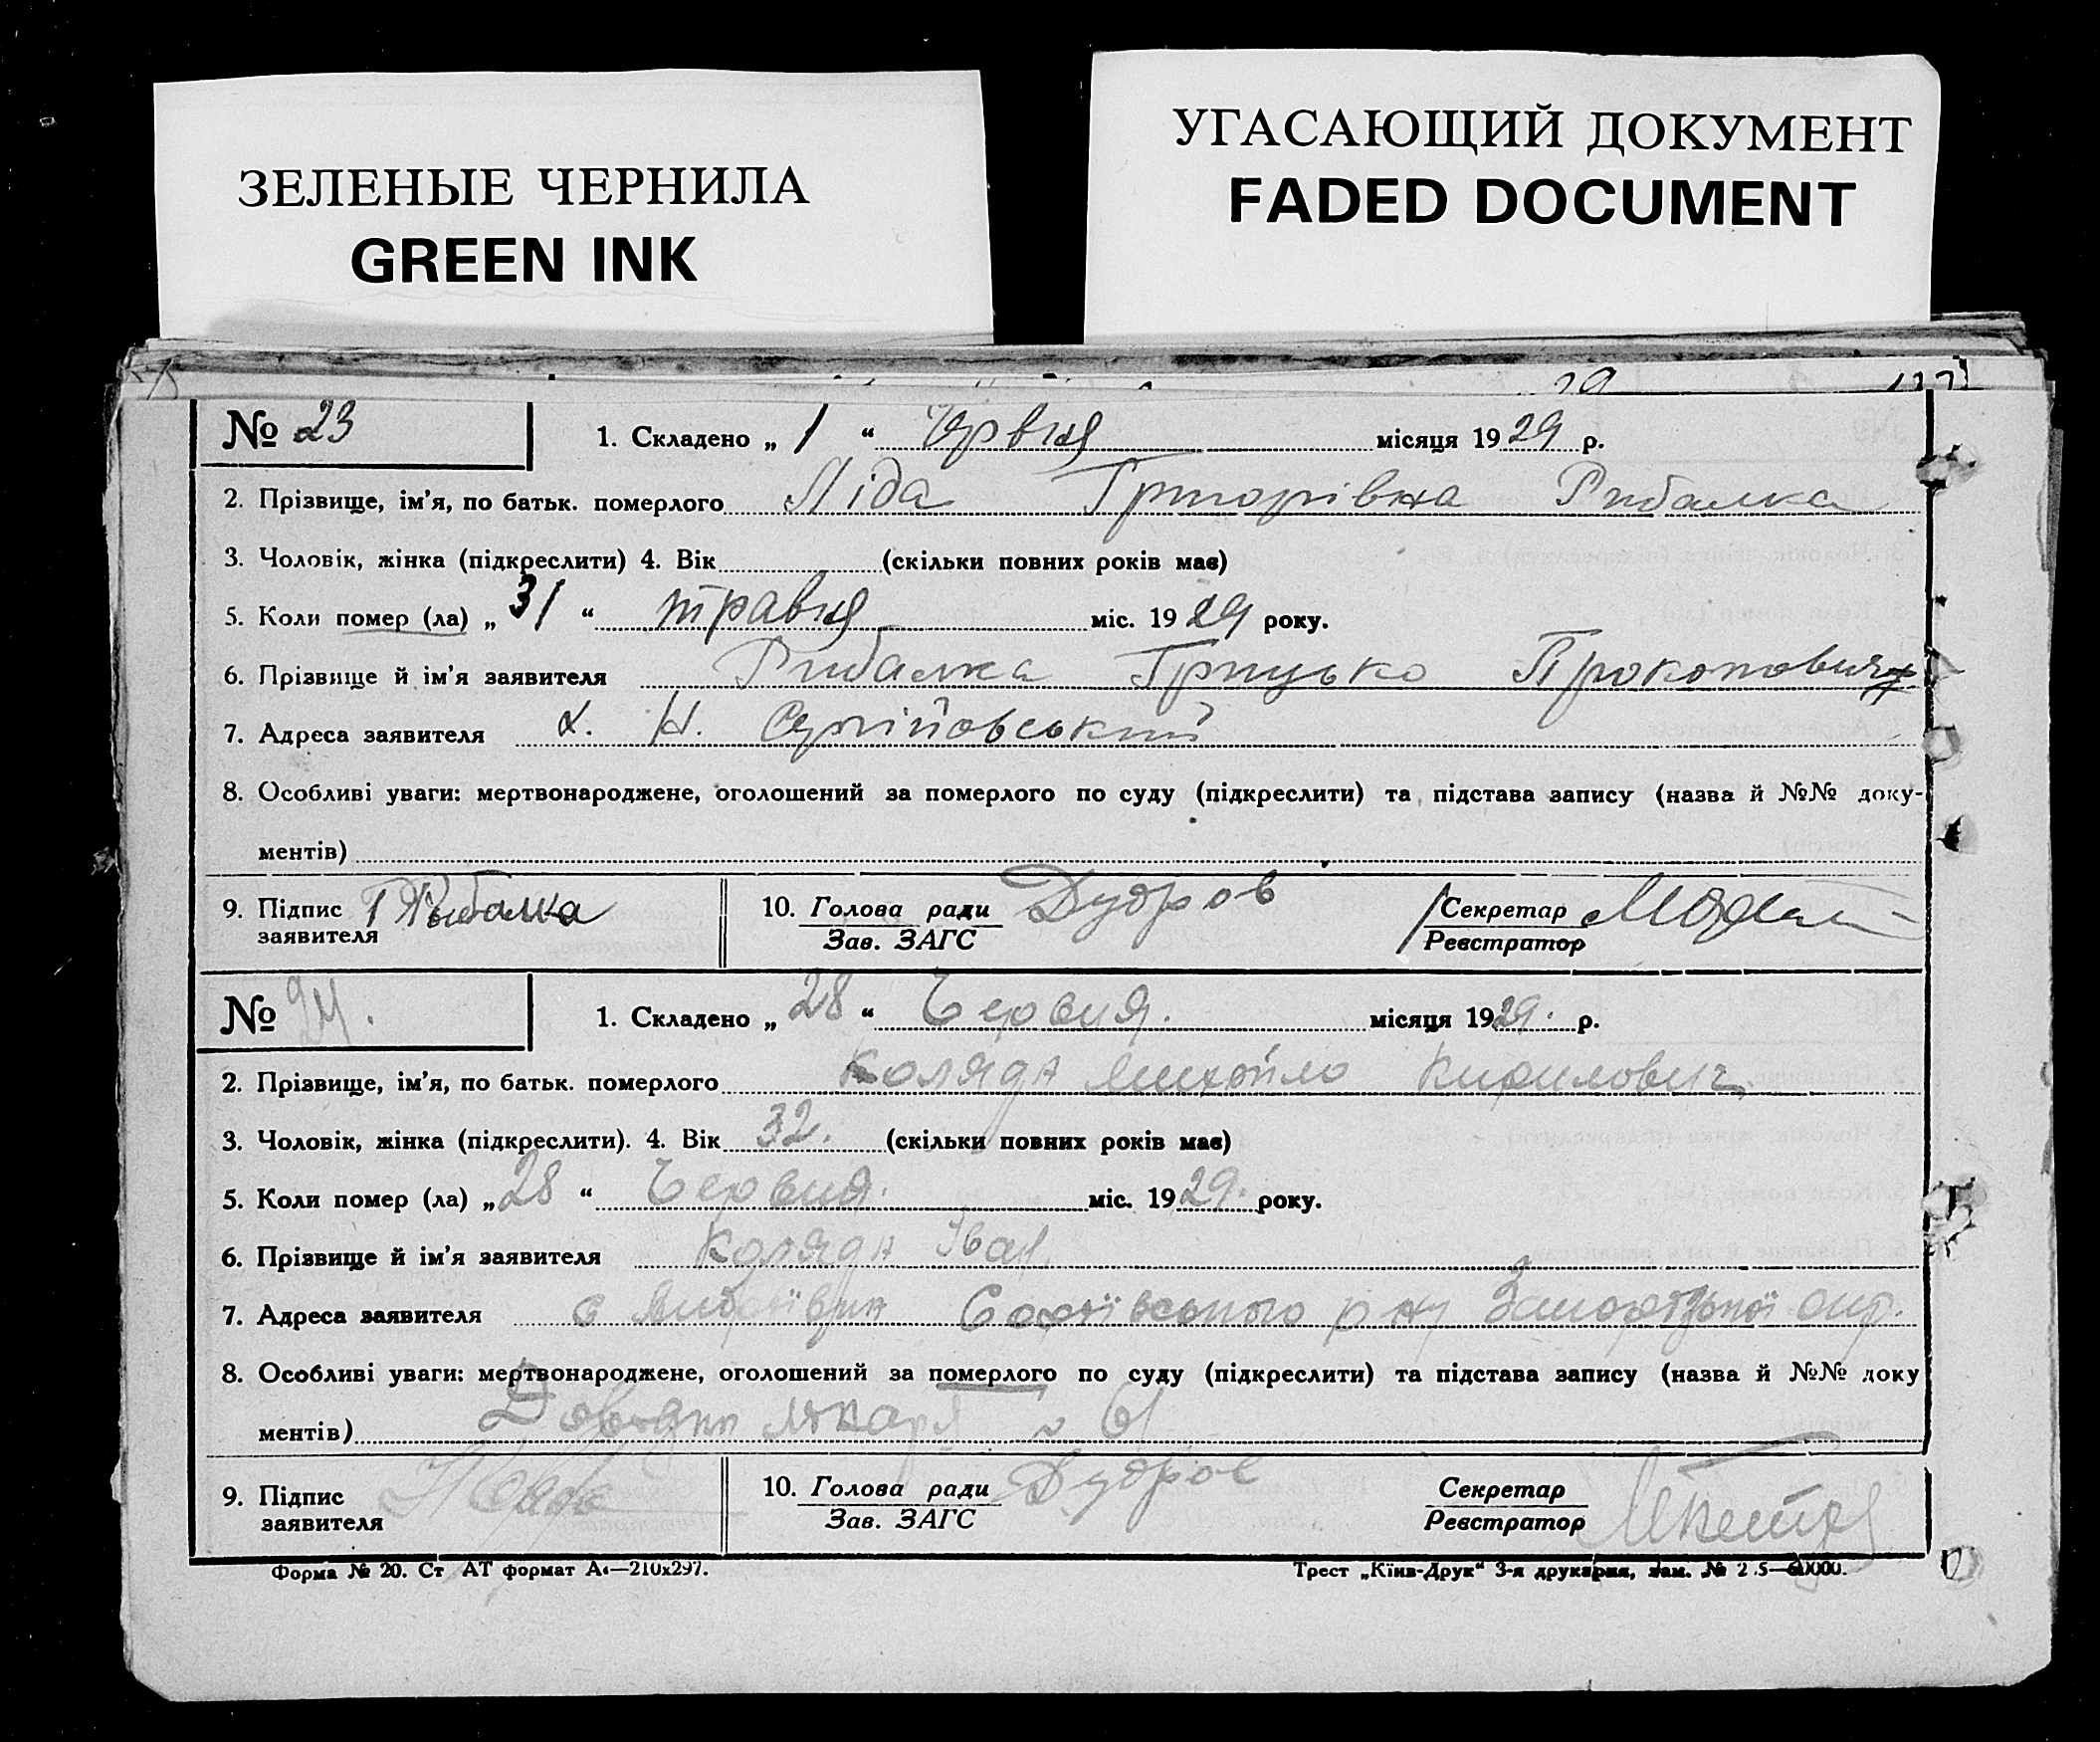 ЗЕЛЕНЫЕ ЧЕРНИЛА
GREEN INK
УГАСАЮЩИЙ ДОКУМЕНТ
FADED DOCUMENT
№ 23
1. Складено „ 1 “ Червня місяця 1929 р.
2. Прізвище, ім’я, по батьк. померлого Ліда Григорівна Рибалка
3. Чоловік, жінка (підкреслити) 4. Вік (скільки повних років має)
5. Коли помер (ла) „ 31 “ травня міс. 1929 року.
6. Прізвище й ім’я заявителя Рибалка Грицько Прокопович
7. Адреса заявителя х. Н. Сергіївський
8. Особливі уваги: мертвонароджене, оголошений за померлого по суду (підкреслити) та підстава запису (назва й №№ доку-
ментів)
9. Підпис заявителя Г Рыбалка
10. Голова ради
Зав. ЗАГС
Секретар
Реєстратор
№ 24.
1. Складено „ 28 “ Червня. місяця 1929. р.
2. Прізвище, ім’я, по батьк. померлого Коляда Михайло Кирилович
3. Чоловік, жінка (підкреслити). 4. Вік 32. (скільки повних років має)
5. Коли помер (ла) „ 28 “ Червня. міс. 1929. року.
6. Прізвище й ім’я заявителя Коляда Іван.
7. Адреса заявителя с Софіївського р ну Запорізької окр.
8. Особливі уваги: мертвонароджене, оголошений за померлого по суду (підкреслити) та підстава запису (назва й №№ доку
ментів) Довідка лікаря № 61
9. Підпис заявителя
10. Голова ради
Зав. ЗАГС
Секретар
Реєстратор
Форма № 20. Ст АТ формат А4—210х297.
Трест „Київ-Друк“ 3-я друкарня, зам. №